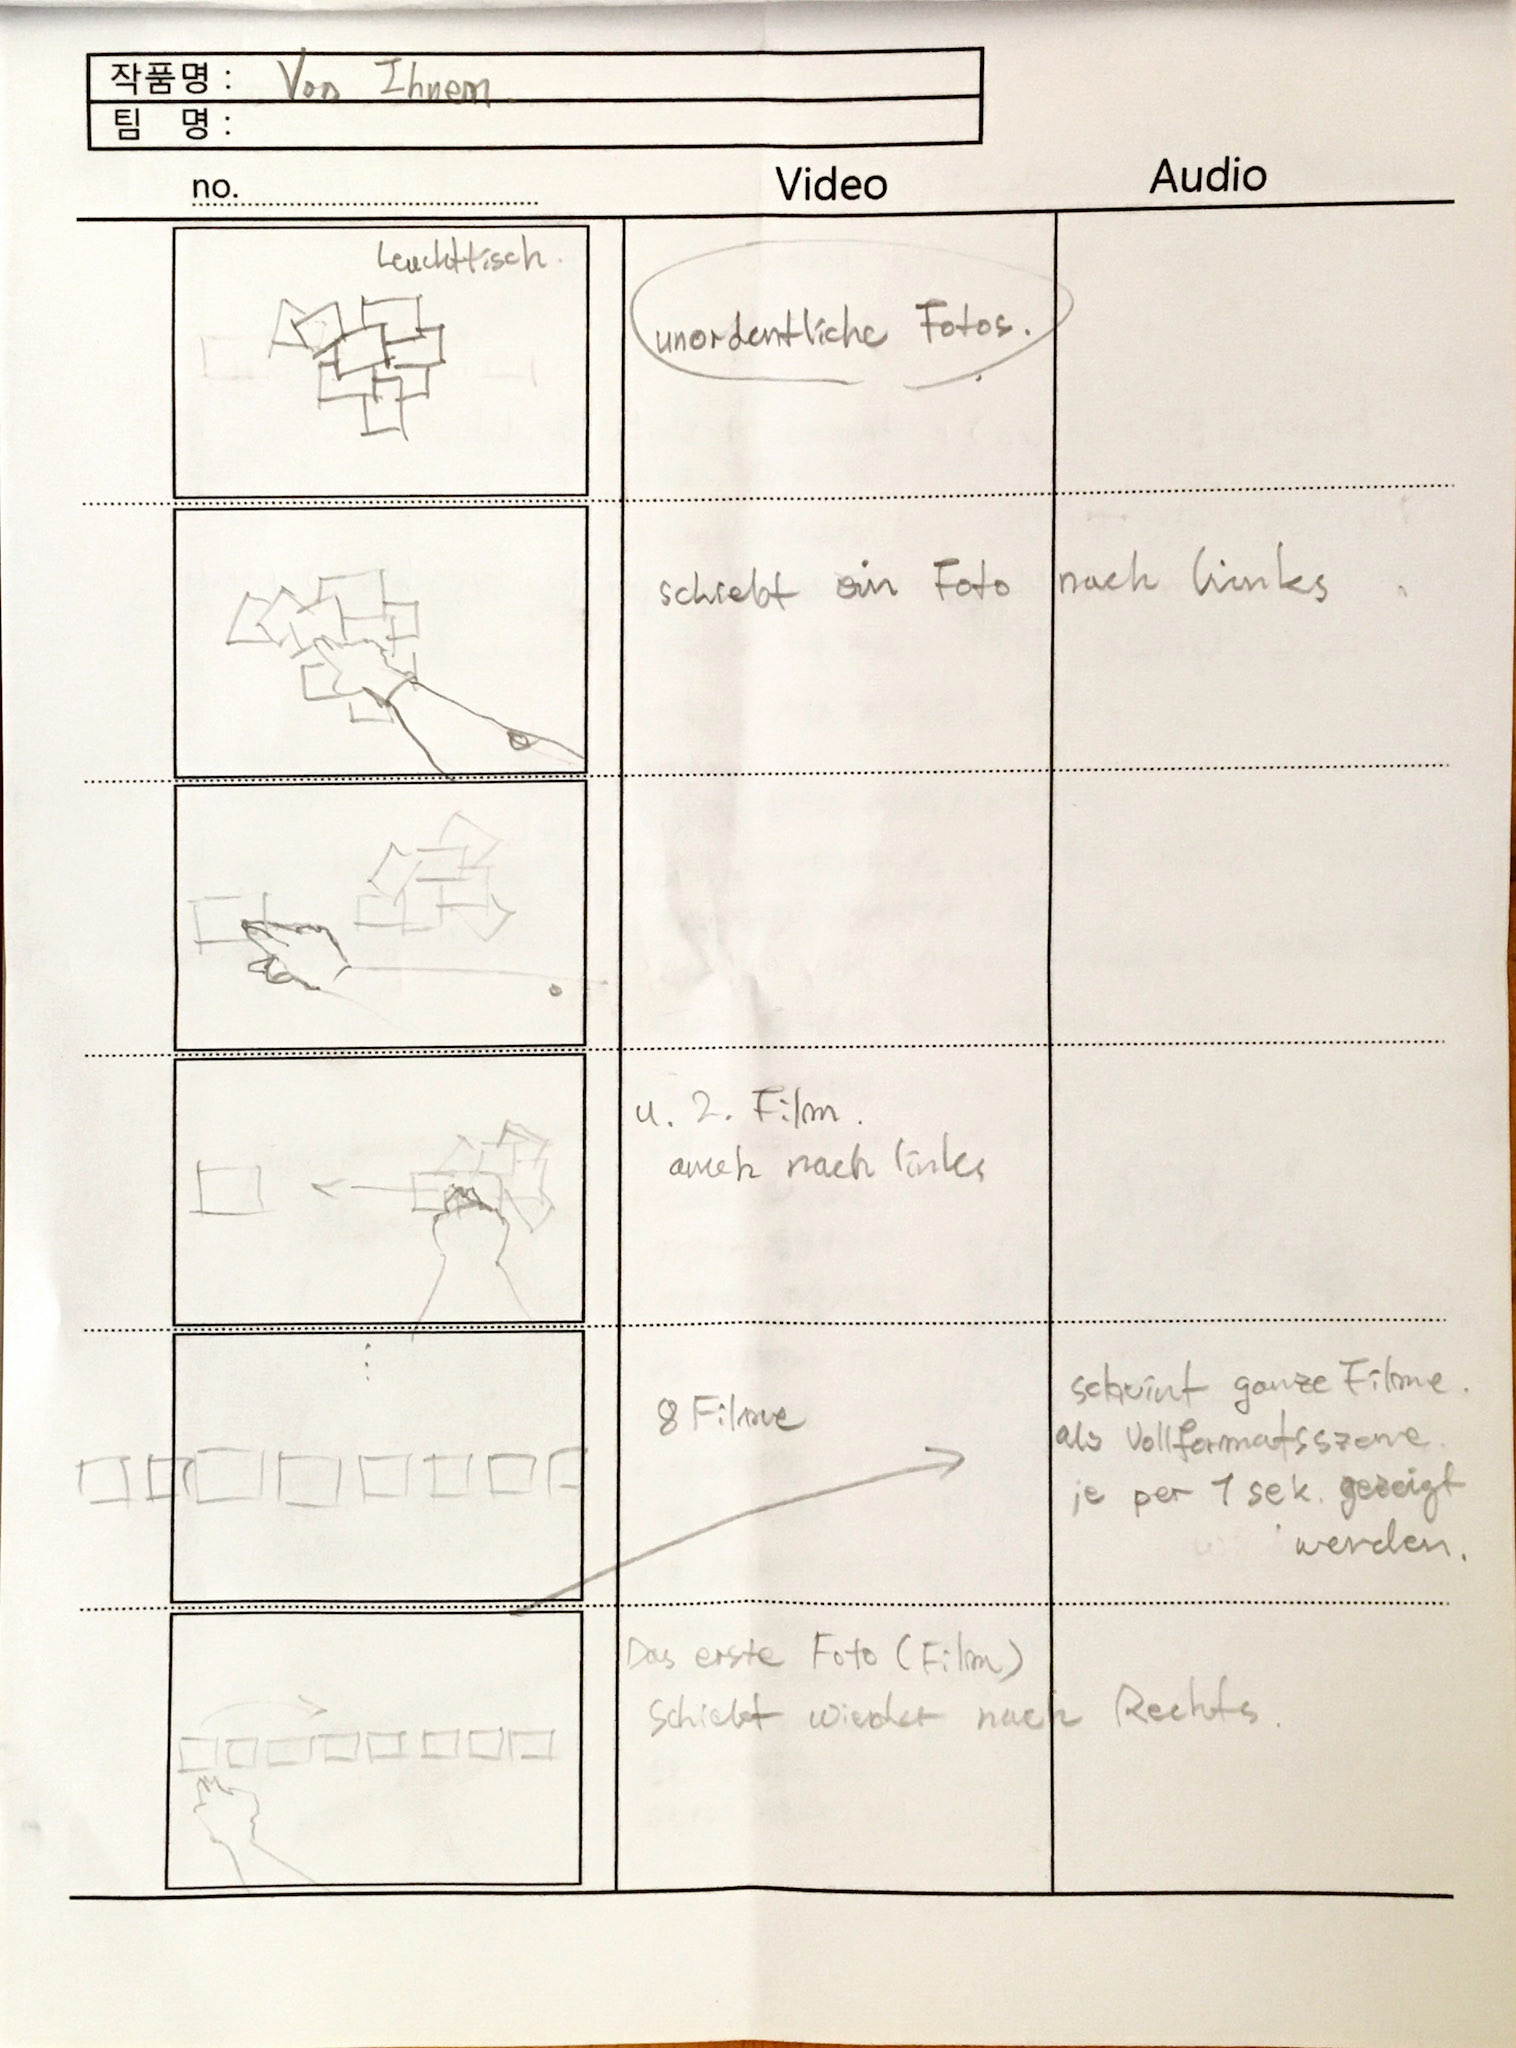 작품명 : Von Ihnem.
팀 명 :
no.
Video
Audio
Leuchttisch.
unordentliche Fotos.
schiebt ein Foto nach links
u. 2. Film.
auch nach links
8 Filme
scheint ganze Filme.
als Vollformatsszene.
je per 1 sek. gezeigt
werden.
Das erste Foto (Film)
schiebt wieder nach Rechts.